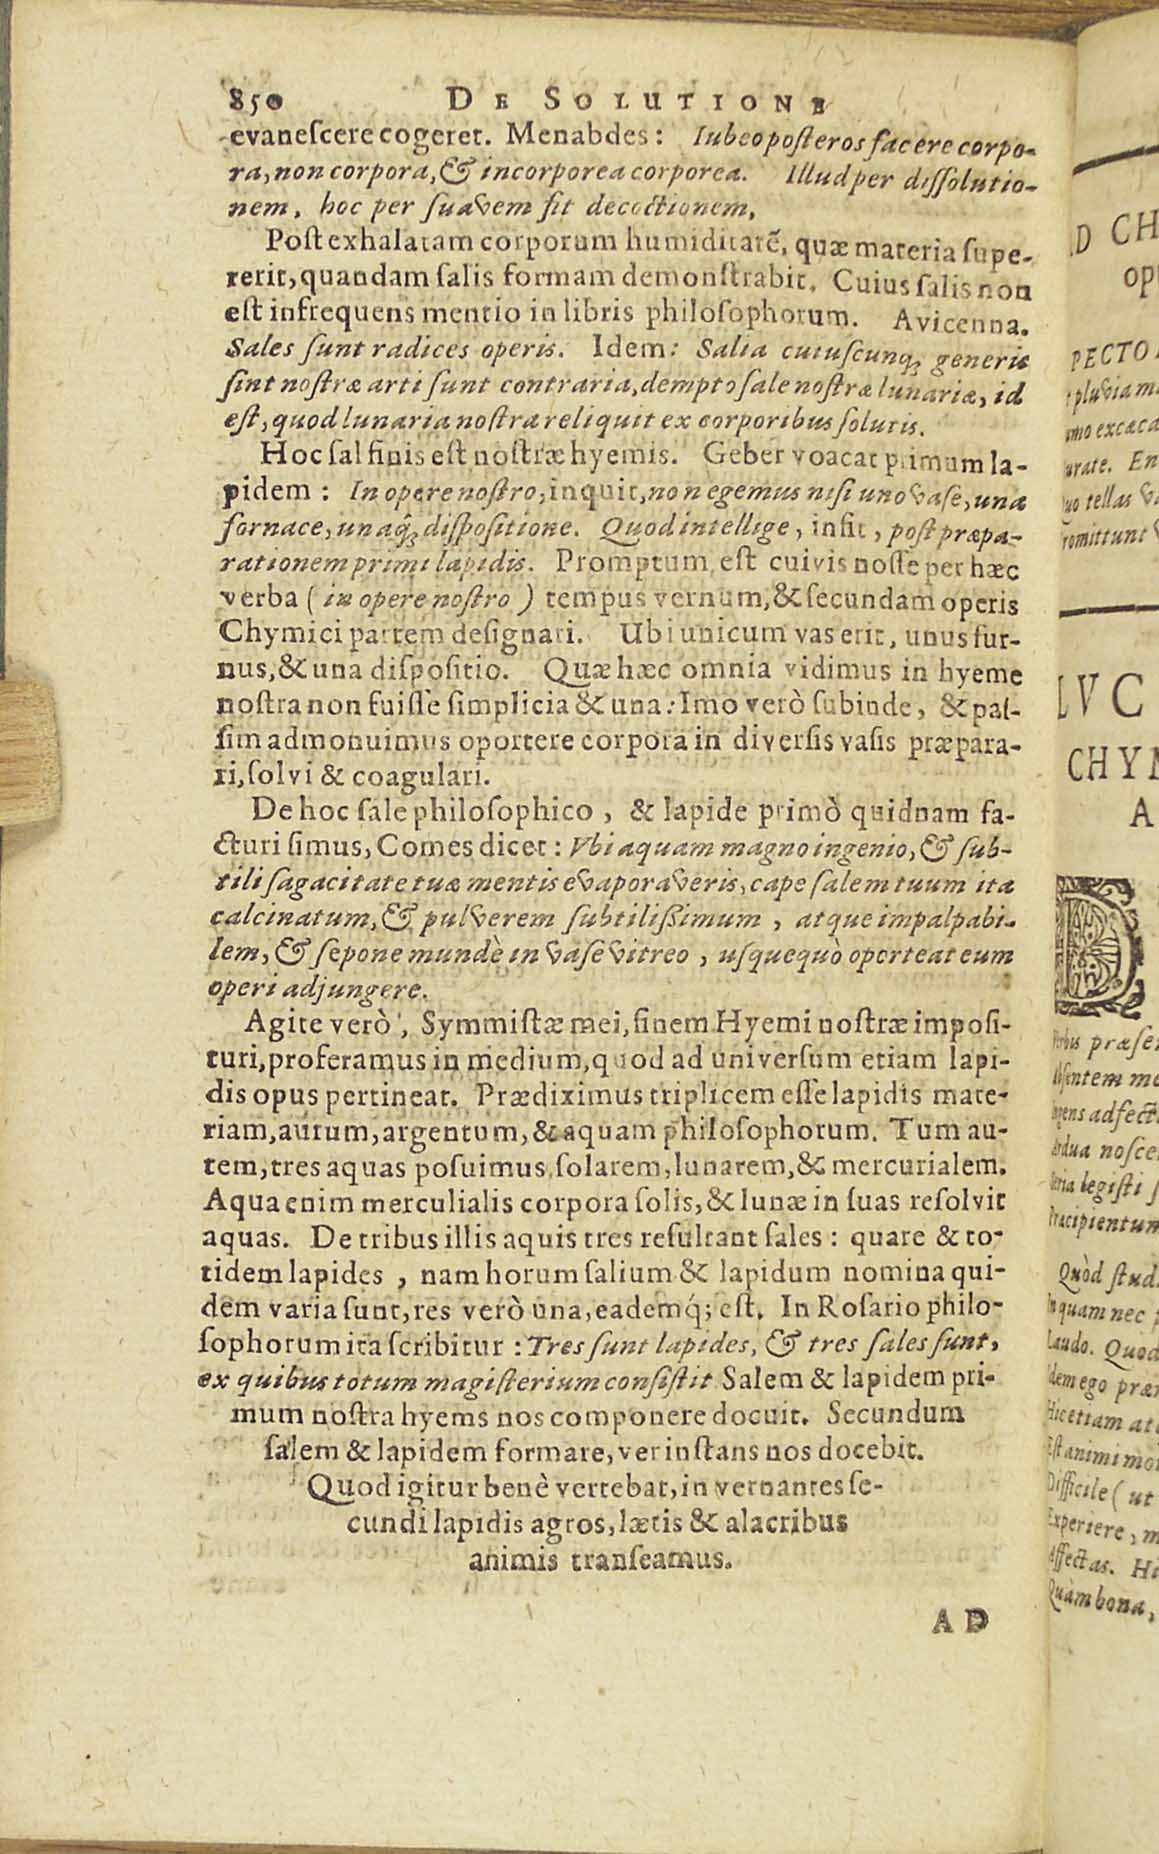 850 DE SOLUTIONE
evanescere cogeret. Menabdes: Iubeo posteros facere corpo-
ra, non corpora, & incorporea corporea. Illud per dissolutio-
nem, hoc per suavem fit decoctionem,
Post exhalatam corporum humiditatẽ, quæ materia supe-
rerit, quandam salis formam demonstrabit. Cuius salis non
est infrequens mentio in libris philosophorum. Avicenna.
Sales sunt radices operis. Idem: Salia cuiuscunq; generis
sint nostræ arti sunt contraria, dempto sale nostræ lunariæ, id
est, quod lunaria nostra reliquit ex corporibus solutis.
Hoc sal finis est nostræ hyemis. Geber voacat primum la-
pidem: In opere nostro, inquit, non egemus nisi uno vase, una
fornace, unaq́; dispositione. Quod intellige, insit, post præpa-
rationem primi lapidis. Promptum est cuivis nosse per hæc
verba (in opere nostro) tempus vernum, & secundam operis
Chymici partem designari. Ubi unicum vas erit, unus fur-
nus, & una dispositio. Quæ hæc omnia vidimus in hyeme
nostra non fuisse simplicia & una: Imo verò subinde, & pas-
sim admonuimus oportere corpora in diversis vasis præpara-
ri, solvi & coagulari.
De hoc sale philosophico, & lapide primò quidnam fa-
cturi simus, Comes dicet: Vbi aquam magno ingenio, & sub-
tili sagacitate tuæ mentis evaporaveris, cape salem tuum ita
calcinatum, & pulverem subtilißimum, atque impalpabi-
lem, & sepone mundè in vase vitreo, usquequò oporteat eum
operi adjungere.
Agite verò, Symmistæ mei, finem Hyemi nostræ imposi-
turi, proferamus in medium, quod ad universum etiam lapi-
dis opus pertineat. Prædiximus triplicem esse lapidis mate-
riam, aurum, argentum, & aquam philosophorum. Tum au-
tem, tres aquas posuimus, solarem, lunarem, & mercurialem.
Aqua enim merculialis corpora solis, & lunæ in suas resolvit
aquas. De tribus illis aquis tres resultant sales: quare & to-
tidem lapides, nam horum salium & lapidum nomina qui-
dem varia sunt, res verò una, eademq́; est. In Rosario philo-
sophorum ita scribitur: Tres sunt lapides, & tres sales sunt,
ex quibus totum magisterium consistit Salem & lapidem pri-
mum nostra hyems nos componere docuit. Secundum
salem & lapidem formare, ver instans nos docebit.
Quod igitur benè vertebat, in vernantes se-
cundi lapidis agros, lætis & alacribus
animis transeamus.
AD
CH
PECTO
pluviam
excæca
En
tellas
romittunt
LVC
CHYM
A
D
præsen
legisti
Quòd stud
quam nec
Laudo. Quod
ego
etiam
animi
Difficile (ut
Experiere, m
Affectas. Hi
Quàm bona,